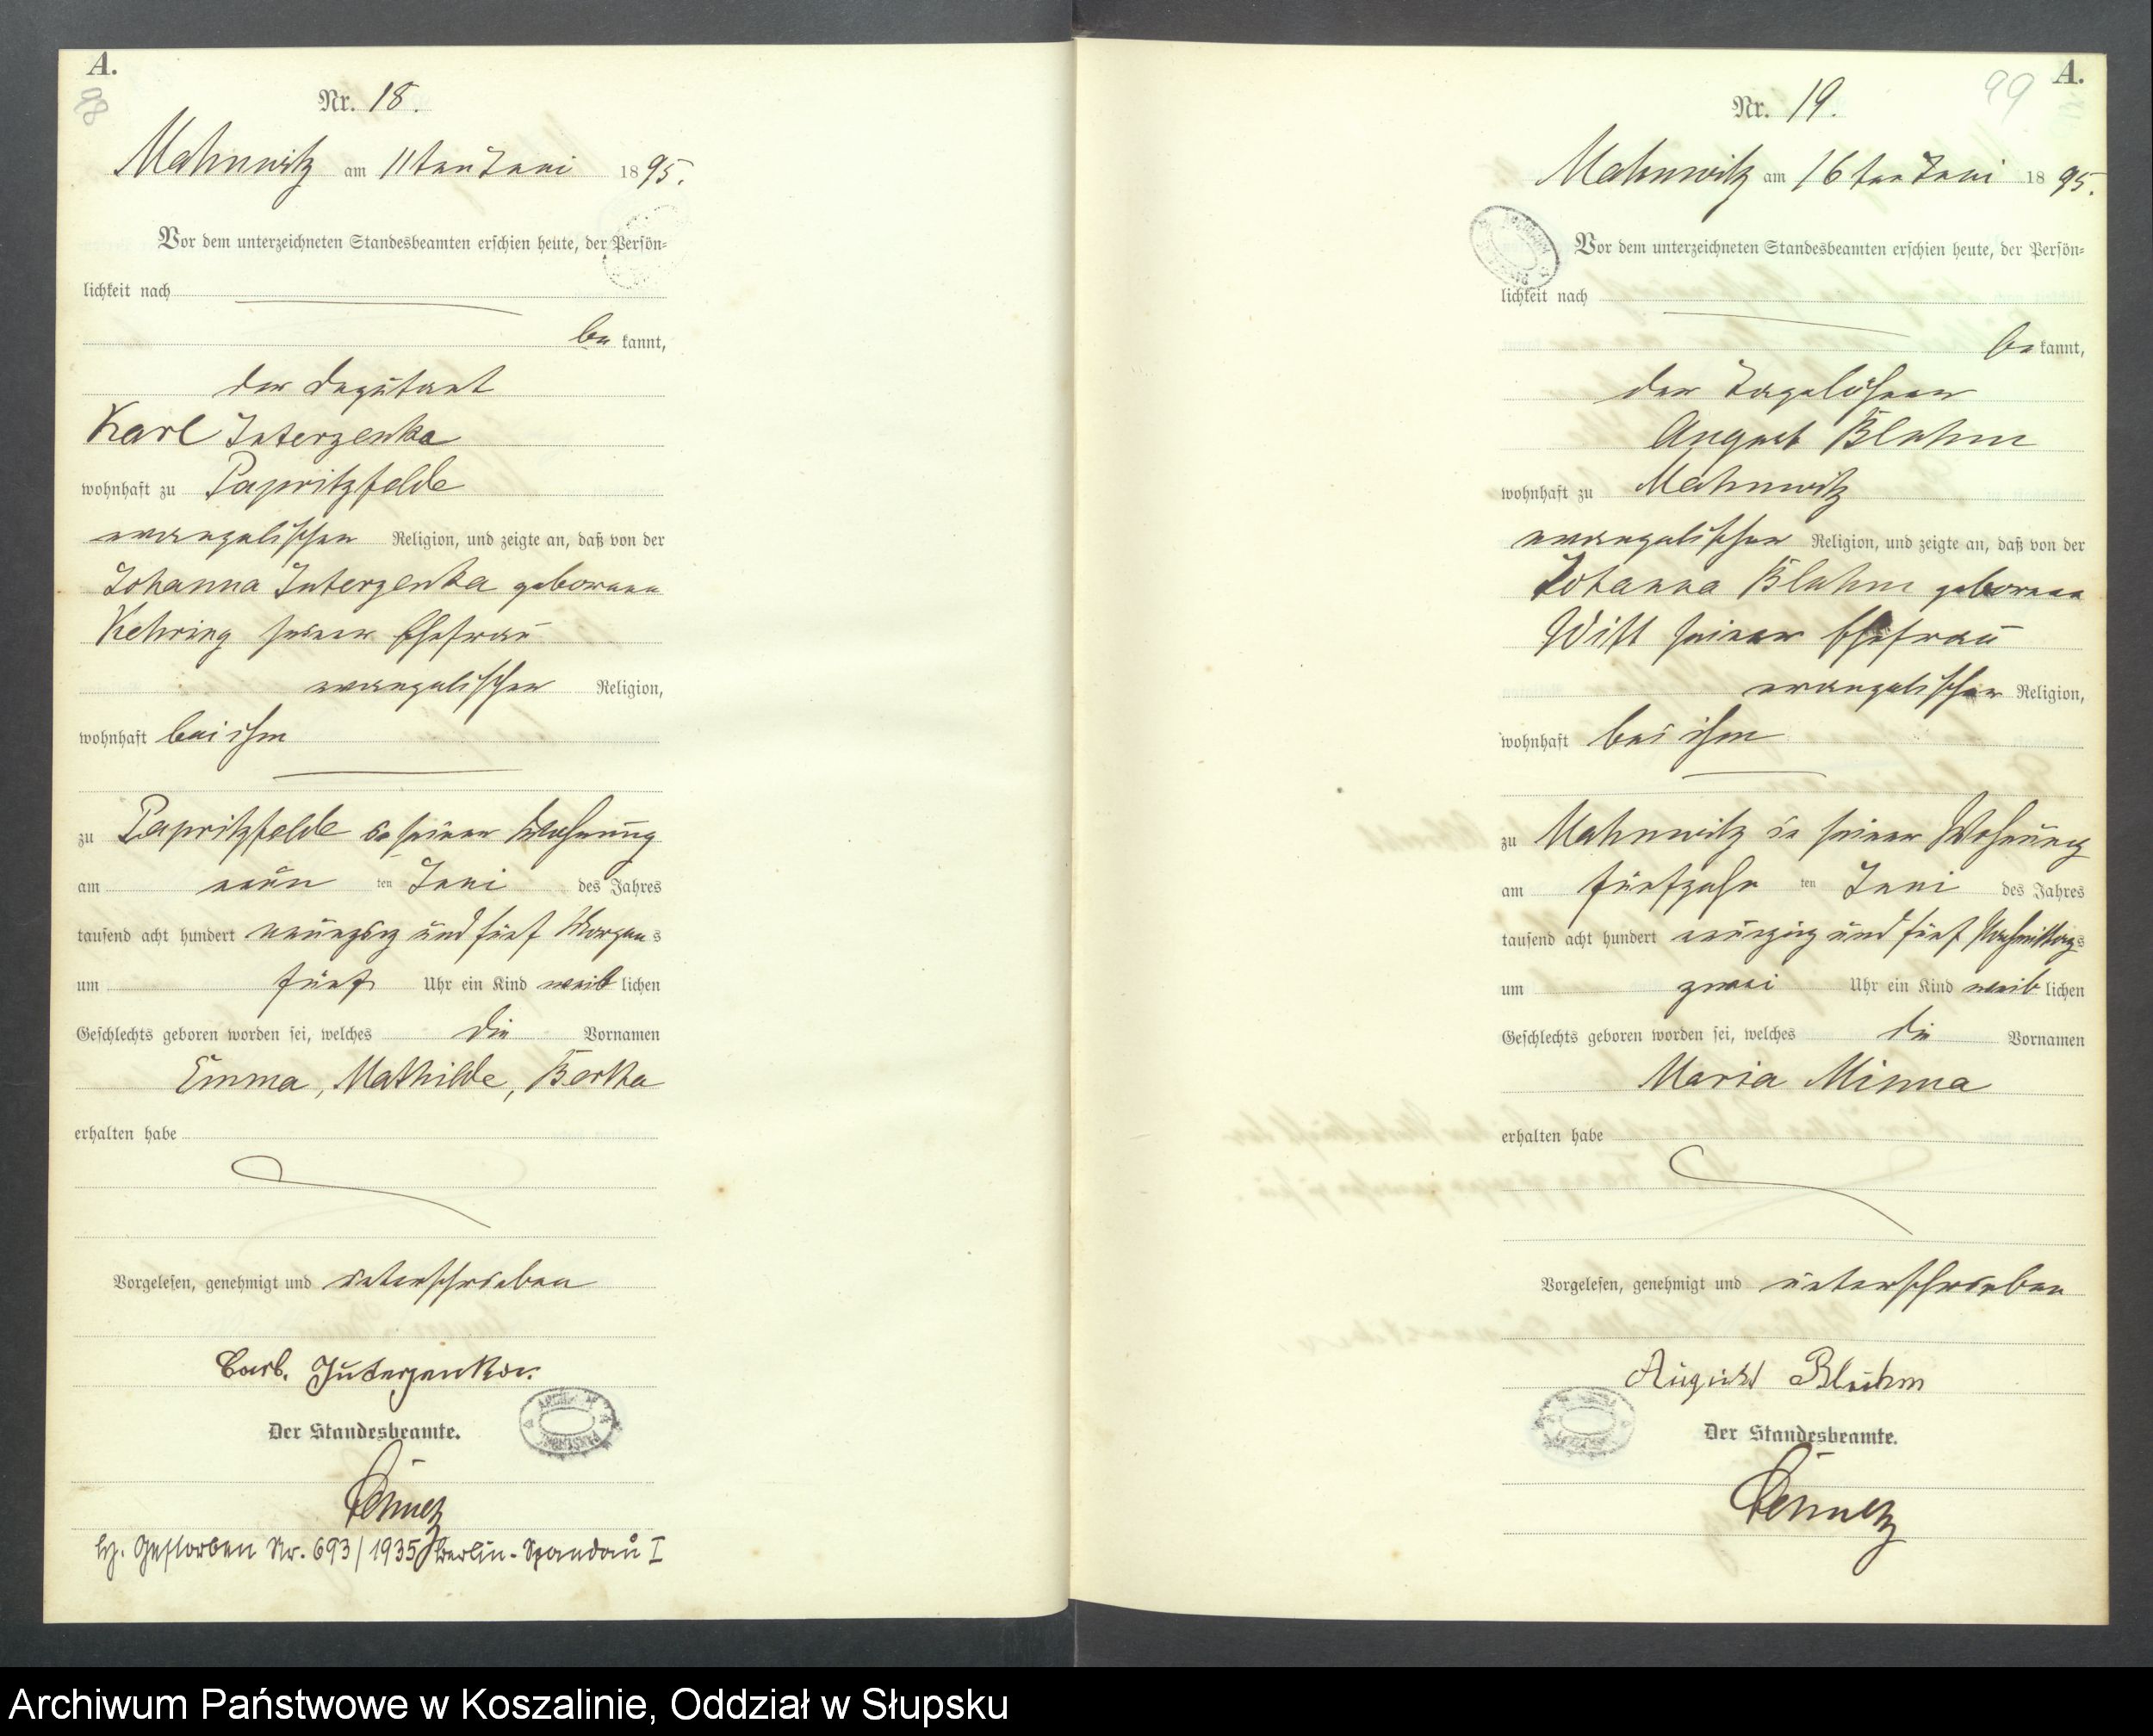 A.
98
Nr. 18.
Mahnwitz am 11ten Juni 1895.
Vor dem unterzeichneten Standesbeamten erschien heute, der Persön-
lichkeit nach
be kannt,
der Deputant
Karl Intergenka
wohnhaft zu Papritzfelde
evangelischer Religion, und zeigte an, daß von der
Johanna Intergenka geborene
Kehring seiner Ehefrau
evangelischer Religion,
wohnhaft bei ihm
zu Papritzfelde in seiner Wohnung
am neun ten Juni des Jahres
tausend acht hundert neunzig und fünf Morgens
um fünf Uhr ein Kind weiblichen
Geschlechts geboren worden sei, welches die Vornamen
Emma, Mathilde, Bertha
erhalten habe
Vorgelesen, genehmigt und unterschrieben
Carl. Intergenka.
Der Standesbeamte.
Gestorben Nr. 693/1935 Berlin-Spandau I
A.
99
Nr. 19.
Mahnwitz am 16ten Juni 1895.
Vor dem unterzeichneten Standesbeamten erschien heute, der Persön-
lichkeit nach
be kannt,
der Tagelöhner
August Bluhm
wohnhaft zu Mahnwitz
evangelischer Religion, und zeigte an, daß von der
Johanna Bluhm geborene
Witt seiner Ehefrau
evangelischer Religion,
wohnhaft bei ihm
zu Mahnwitz in seiner Wohnung
am fünfzehn ten Juni des Jahres
tausend acht hundert neunzig und fünf Nachmittags
um zwei Uhr ein Kind weiblichen
Geschlechts geboren worden sei, welches die Vornamen
Maria Minna
erhalten habe
Vorgelesen, genehmigt und unterschrieben
August Bluhm
Der Standesbeamte.
Archiwum Państwowe w Koszalinie, Oddział w Słupsku